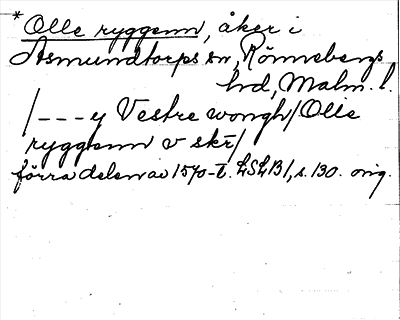 *Olle ryggenn, åker i
Asmundtorps sn, Rönnebergs
hd, Malm. l.
/--- y Vestre wongh/ Olle
ryggenn v skr̄/
förra delen av 1570-t. LSLB1, s. 130. orig.